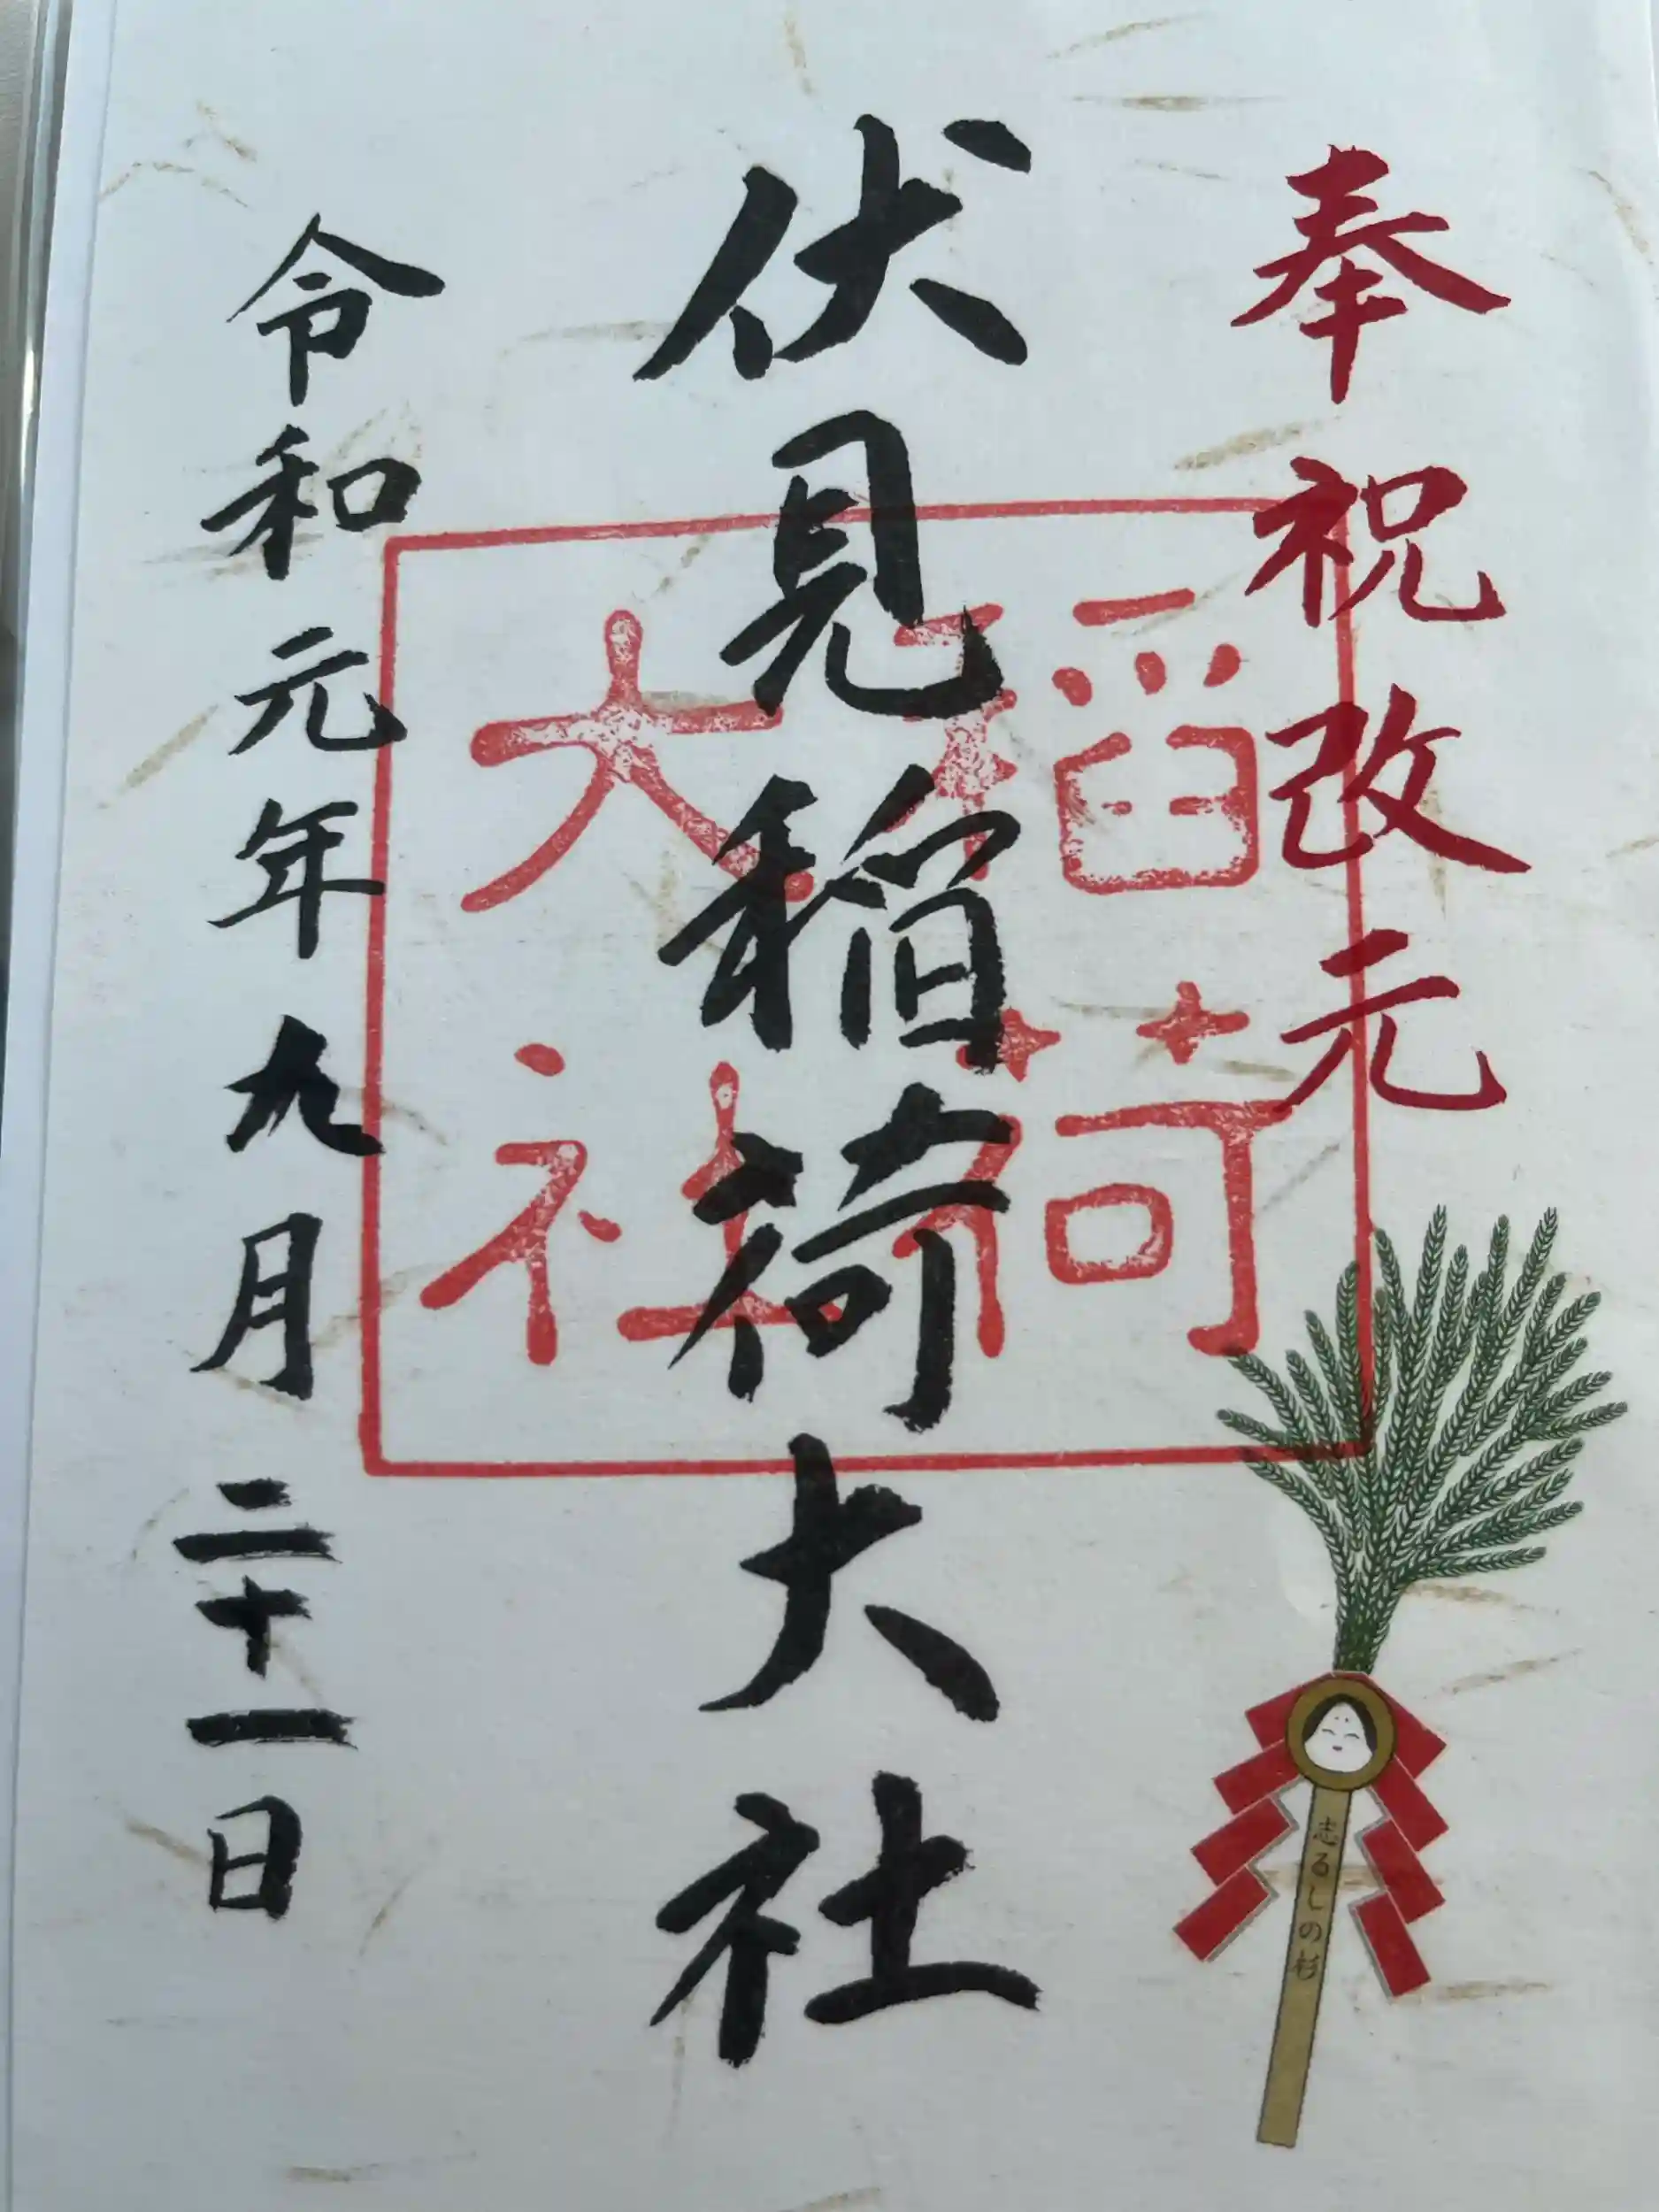 奉祝改元
伏見稲荷大社
稲荷
大社
令和元年九月二十一日
志るしの杉